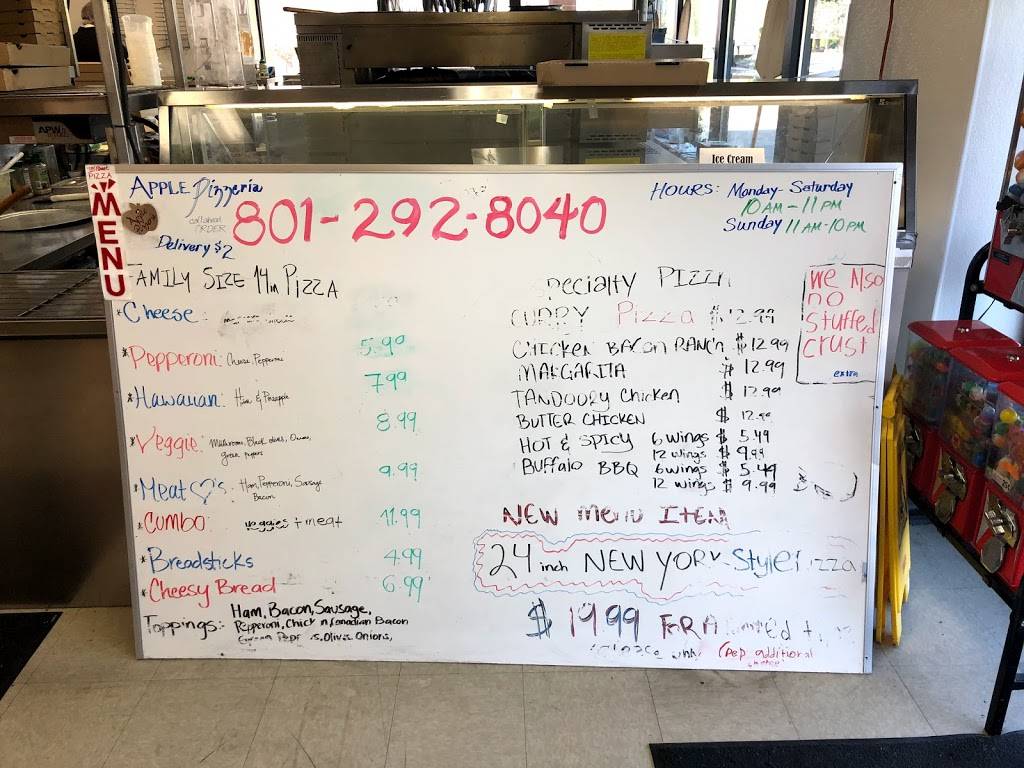 APW
Ice Cream
PIZZA
MENU
APPLE Pizzeria
801-292-8040
call ahead
ORDER
Delivery $2
HOURS: Monday-Saturday
10AM-11PM
Sunday 11AM-10PM
FAMILY SIZE 14in PIZZA
Cheese:
5.99
Pepperoni: Cheese, Pepperoni
7.99
Hawaiian: Ham & Pineapple
8.99
Veggie: Mushrooms, Black olives, Onions,
green peppers
9.99
Meat ♡'s: Ham, Pepperoni, Sausage
Bacon
Cumbo: veggies + meat 11.99
Breadsticks 4.99
Cheesy Bread 6.99
Toppings: Ham, Bacon, Sausage,
Pepperoni, Chick n, Canadian Bacon
Green Pepp s, Olives, Onions,
Specialty PIZZA
CURRY Pizza $12.99
CHICKEN BACON RANCH $12.99
MARGARITA $12.99
TANDOORY Chicken $12.99
BUTTER CHICKEN $12.99
HOT & SPICY 6 wings $5.49
12 wings $9.99
BUFFALO BBQ 6 wings $5.49
12 wings $9.99
We Also
DO
Stuffed
crust
extra
NEW Menu ITEM
24 inch NEW YORK-Style Pizza
$19.99 FOR A
only (Pep additional